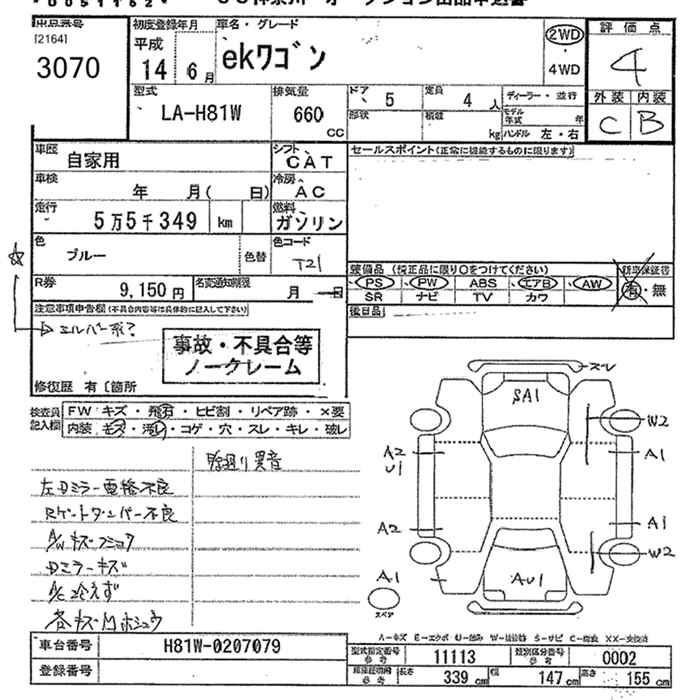 出品番号
[2164]
3070
初度登録年月
平成
14 6月
車名・グレード
ekワゴン
2WD
・
4WD
評価点
4
外装 内装
C B
型式
LA-H81W
排気量
660
CC
ドア
5
定員
4人
形状
積載
kg
ディーラー・並行
モデル年式 年
ハンドル 左・右
車歴
自家用
シフト
CAT
車検
年 月( 日)
冷房
AC
走行
5万5千349 km
燃料
ガソリン
色
ブルー
色替
色コード
T21
R券
9,150円
名変通知制限
月 日
セールスポイント(正常に機能するものに限ります)
装備品 (純正品に限り○をつけてください)
新車保証書
PS PW ABS エアB AW
SR ナビ TV カワ
有・無
後日品
注意事項申告欄(不具合内容等は具体的に記入して下さい)
シルバー系?
事故・不具合等
ノークレーム
修復歴 有〔箇所
検査員記入欄
FW キズ・飛石・ヒビ割・リペア跡・×要
内装 キズ・汚レ・コゲ・穴・スレ・キレ・破レ
左Dミラー電格不良
Rゲートダンパー不良
A/Wキズ
Dミラーキズ
A/C冷えず
各キズ
異音
スレ
SA1
W2
A2
U1
A1
A2
A1
W2
A1
AU1
スペア
A-キズ E-エクボ U-凹み W-補修跡 S-サビ C-腐食 XX-交換済
車台番号
H81W-0207079
登録番号
型式指定番号
参考
11113
類別区分番号
参考
0002
参考
長さ
339 cm
幅
147 cm
高さ
155 cm